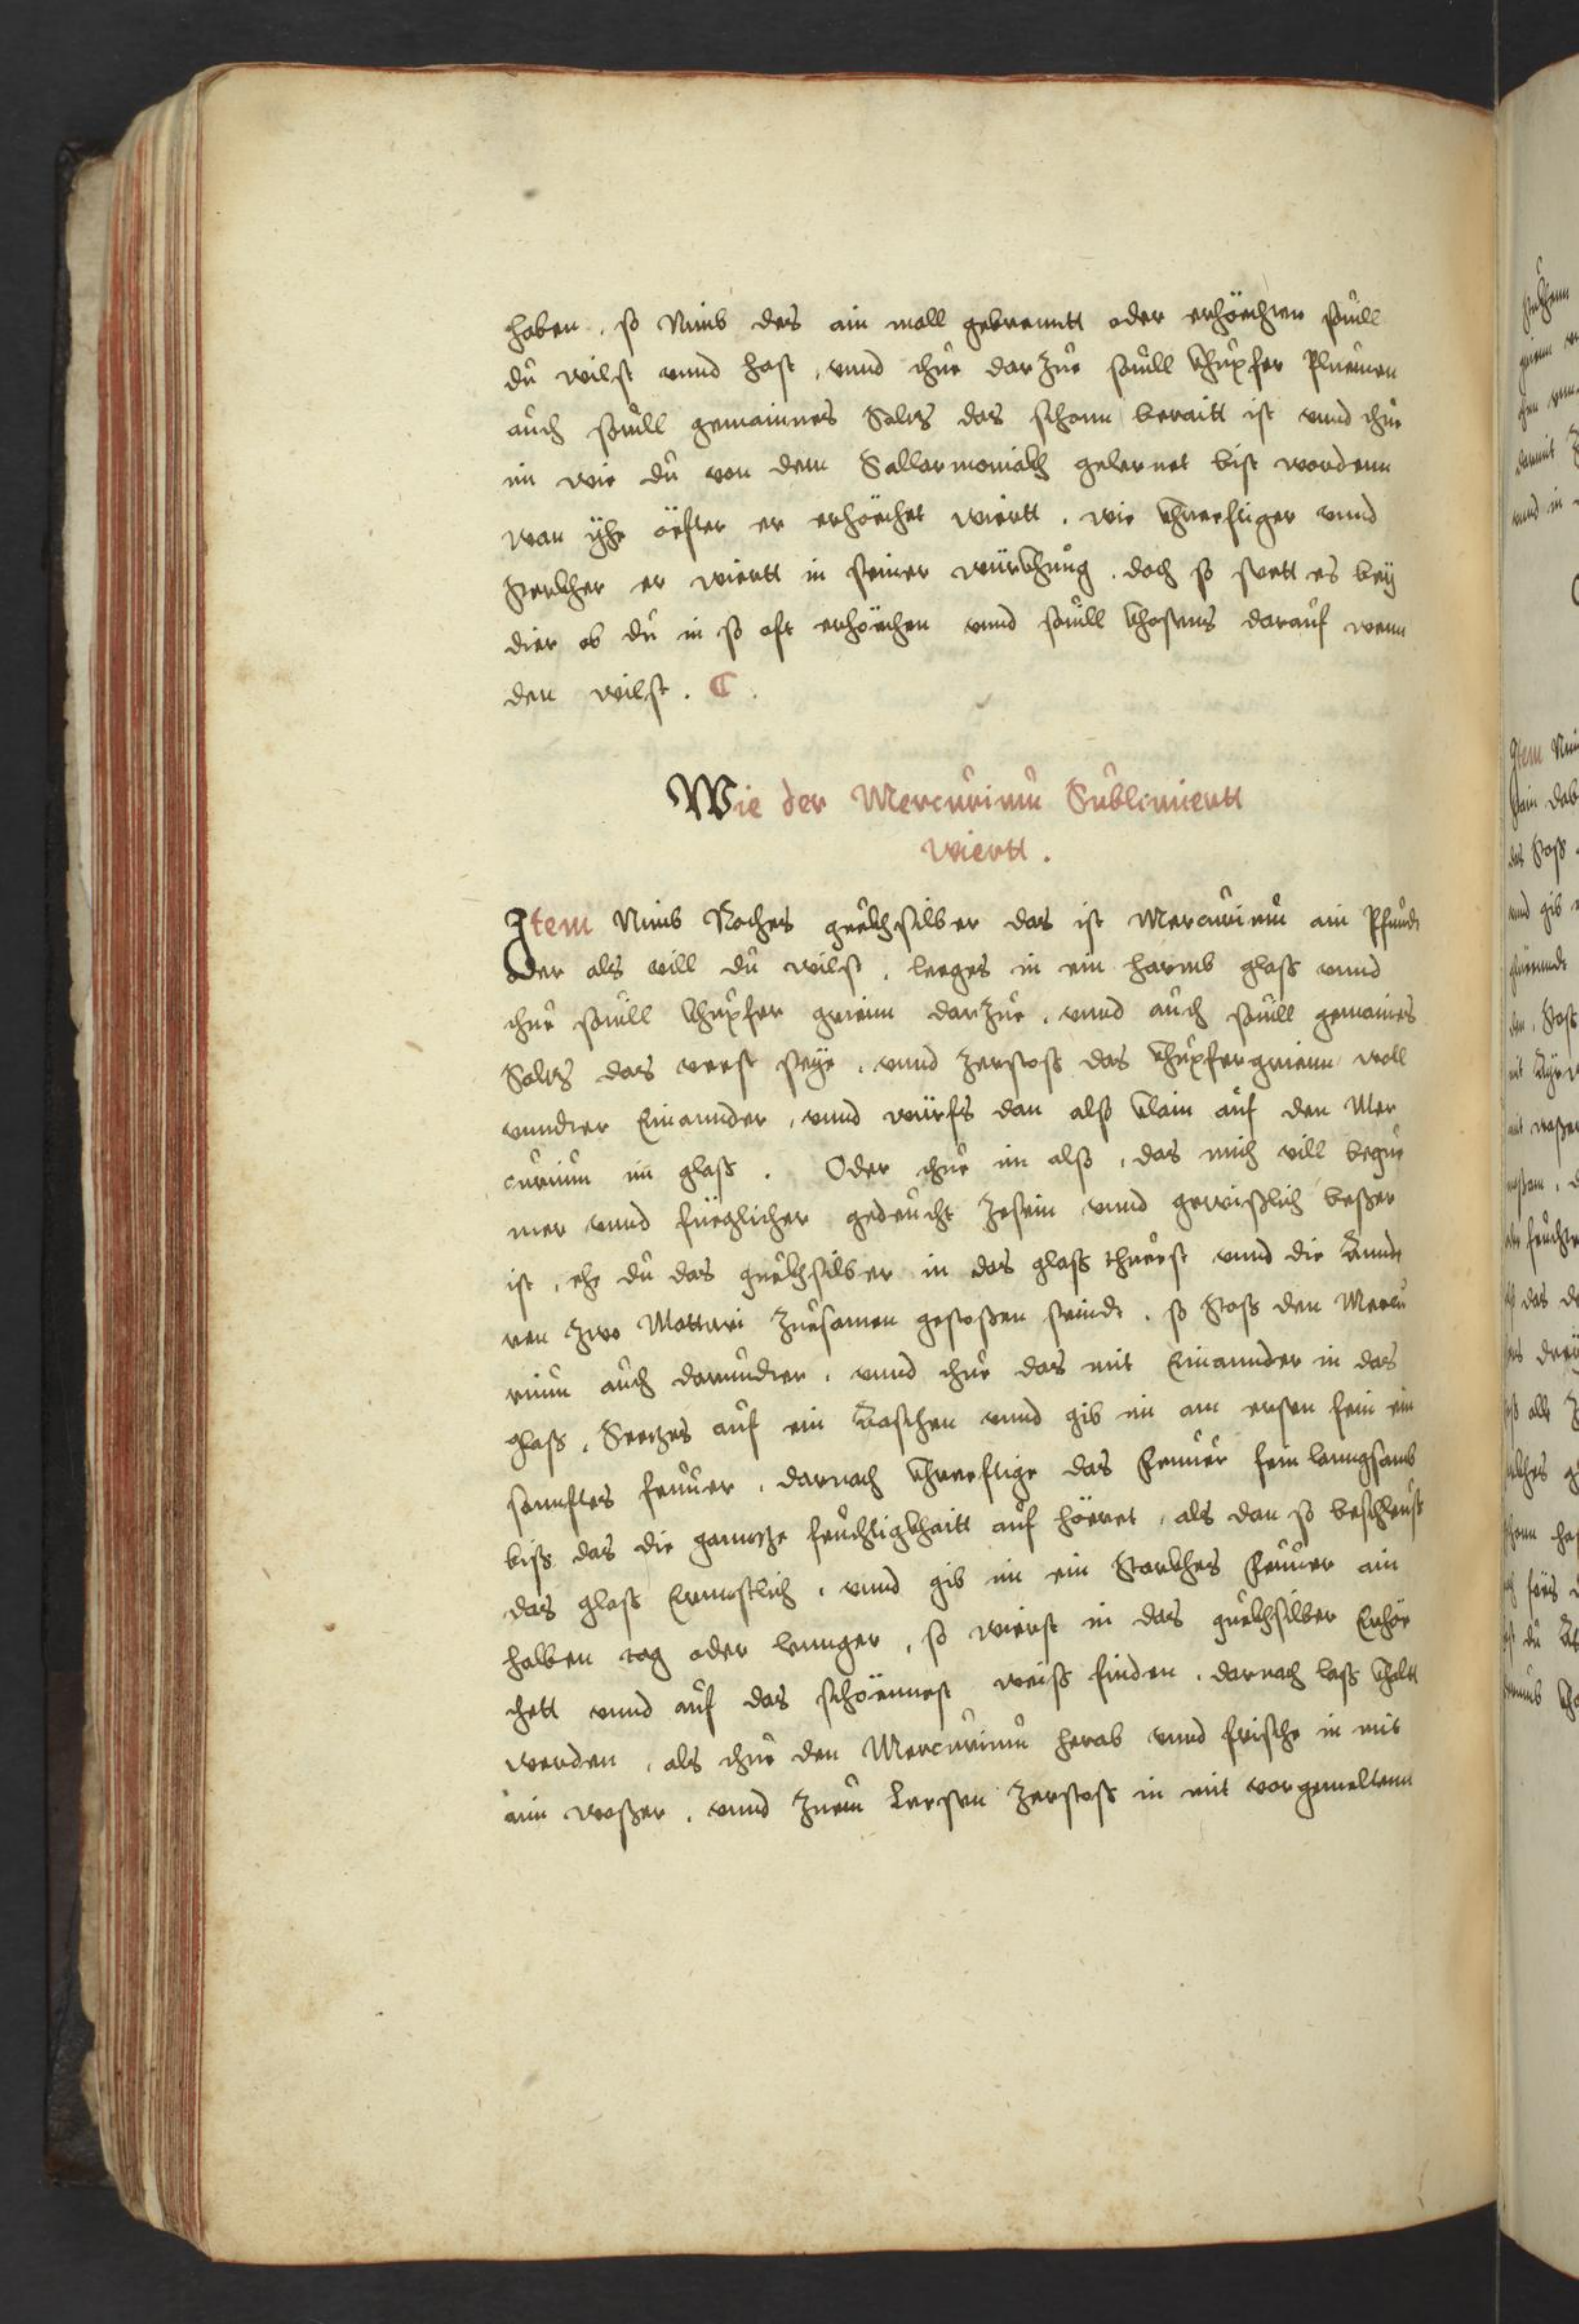 haben . so Nimb des ain mall gebrenntt oder erhöechten souill
du wilst vnnd hast , vnnd thue darzue souill khupfer Pluemen
auch souill gemainnes Saltz das schonn beraitt ist vnnd thue
im wie du von dem Sallarmoniakh gelernet bist wordenn
wan yhe öfter er erhöechet wiertt . wie khreftiger vnnd
sterkher er wiertt in seiner würkhung . doch so stett es bey
dier ob du in so oft erhöechen vnnd souill khostens darauf wenn
den wilst .
Wie der Mercurium Sublimiertt
wiertt .
Item Nimb Roches quekhsilber das ist Mercurium ain Pfundt
oder als vill du wilst . leeges in ein harmb glass vnnd
thue souill khupfer grienn darzue . vnnd auch souill gemaines
Saltz das vest seye . vnnd zerstoss das khupfergrienn woll
vnndter Einannder , vnnd würfs dan alss klain auf den Mer
curium im glass . Oder thue im alss , das mich vill beque
mer vnnd füeglicher gedeucht zesein vnnd gewisslich besser
ist , ehe du das quekhsilber in das glass thuest vnnd die Annde
ren zwo Matteri zuesamen gestossen seindt . so stoss den Mercu
rium auch darundter . vnnd thue das mit Einannder in das
glass . Seetzes auf ein Aaschen vnnd gib im am ersten fein ein
sennftes feuuer . darnach khreeftige das feuuer fein lanngsamb
biss das die ganntze feuchtigkhaitt auf höeret , als dan so beschleust
das glass Ernnstlich . vnnd gib im ein Starkhes feuuer ain
halben tag oder lennger , so wierst in das quekhsilber Erhöe
chett vnnd auf das schöennest weiss finden . darnach lass khaltt
werden , als thue den Mercurium herab vnnd frische in mit
aim wasser . vnnd zuem Lersten zerstoss in mit vorgemeltenn